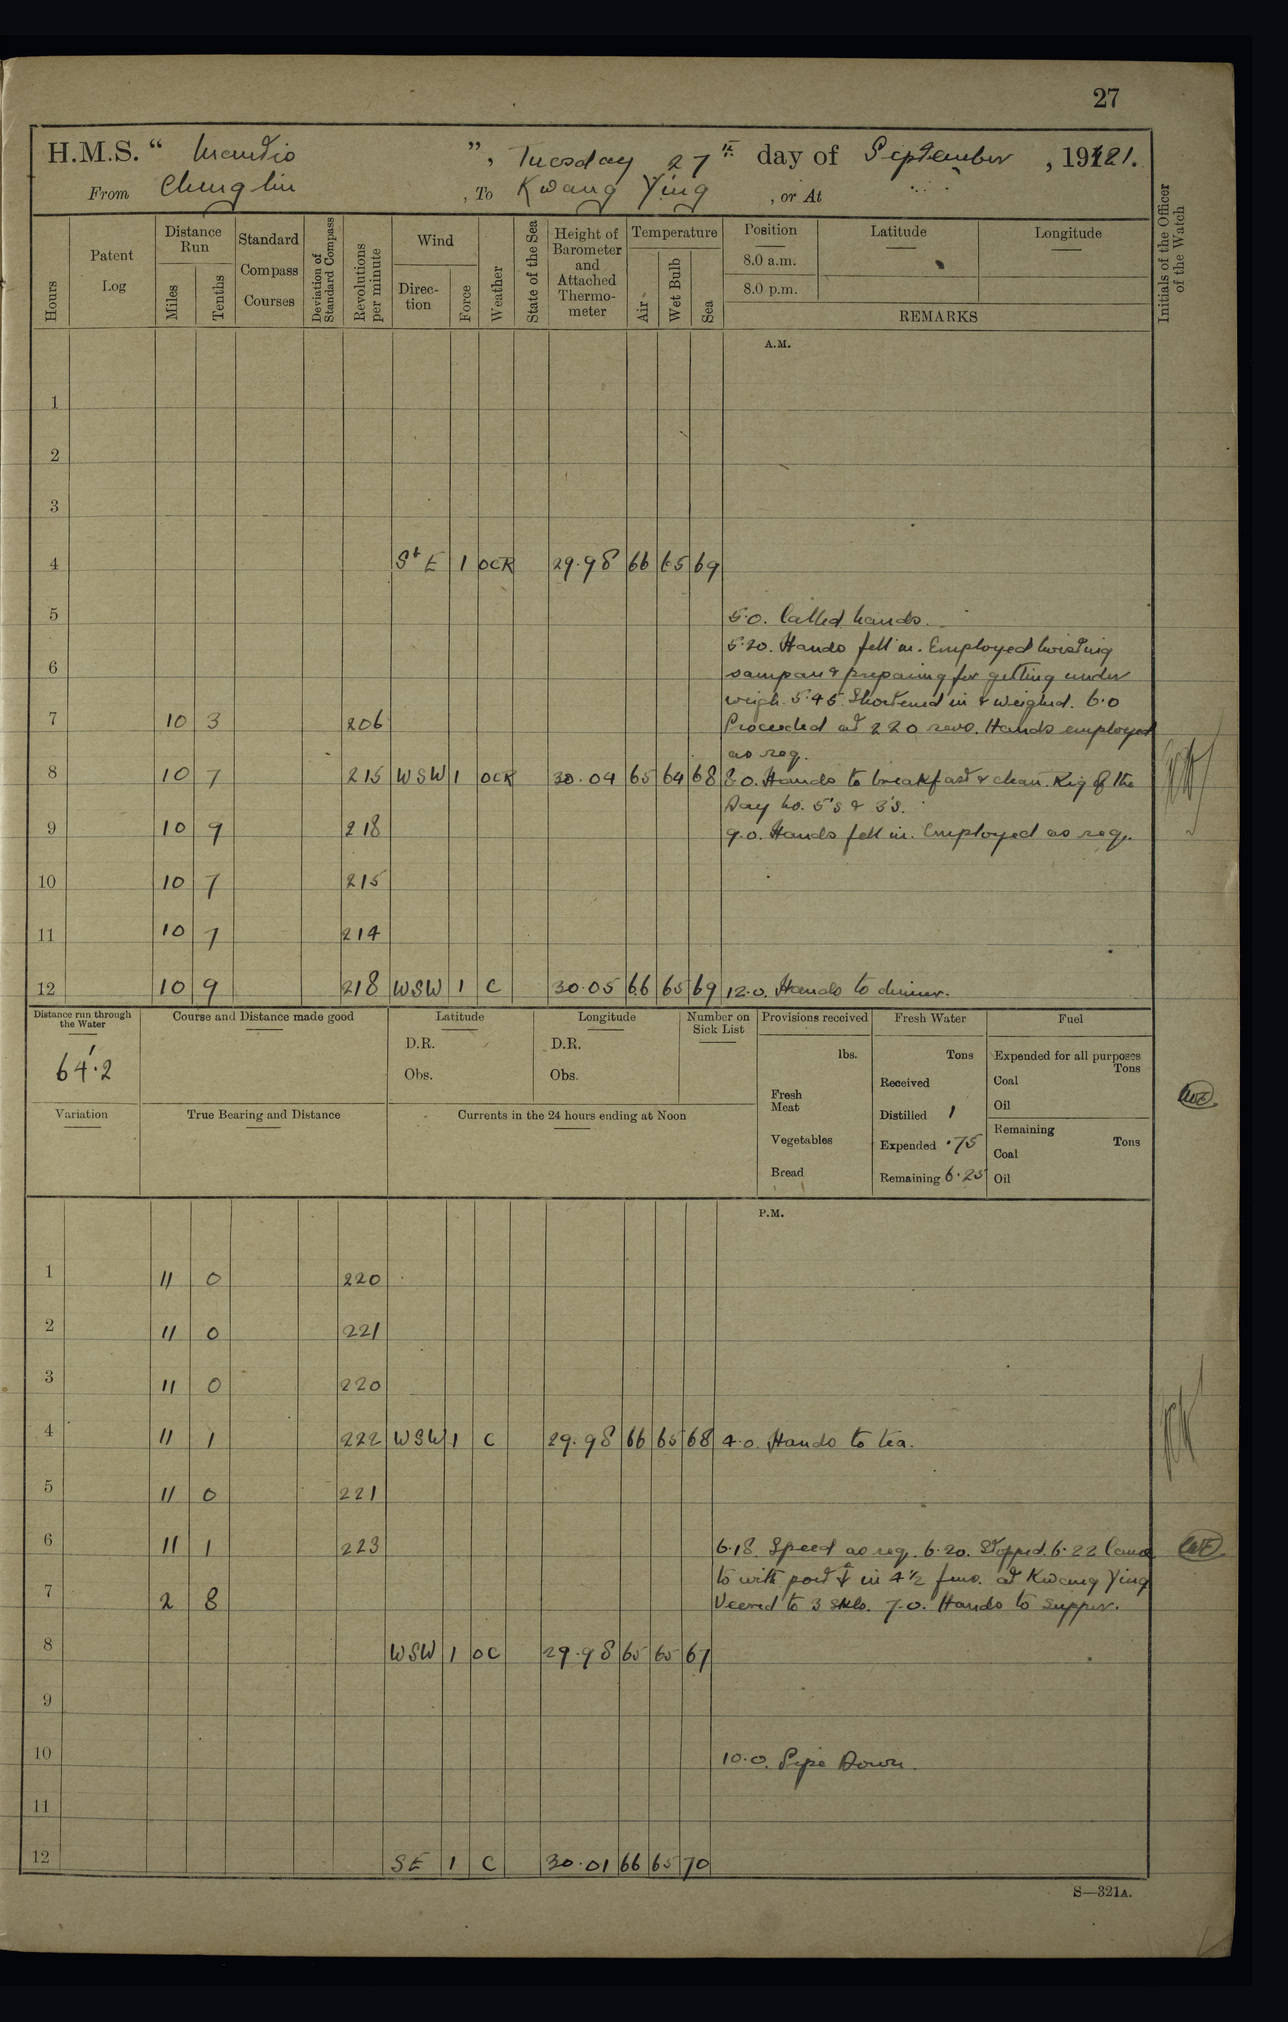 27
H.M.S. “ Mantis ”, Tuesday 27th day of September, 1921.
From Chenglin, To Kwang Ying, or At
Hours
Patent Log
Distance Run
Miles
Tenths
Standard Compass Courses
Deviation of Standard Compass
Revolutions per minute
Wind
Direction
Force
Weather
State of the Sea
Height of Barometer and Attached Thermometer
Temperature
Air
Wet Bulb
Sea
Position
8.0 a.m.
8.0 p.m.
Latitude
Longitude
REMARKS
Initials of the Officer of the Watch
A.M.
1
2
3
4 SbE 1 OCR 29.98 66 65 69
5 5.0. Called hands.
5.20. Hands fell in. Employed hoisting
6 sampan & preparing for getting under
weigh. 5.45. Shortened in & weighed. 6.0
7 10 3 206 Proceeded at 220 revs. Hands employed
as req.
8 10 7 215 WSW 1 OCR 30.04 65 64 68 8.0. Hands to breakfast & clean. Rig of the
Day No. 5's & 3's.
9 10 9 218 9.0. Hands fell in. Employed as req.
10 10 7 215
11 10 7 214
12 10 9 218 WSW 1 C 30.05 66 65 69 12.0. Hands to dinner.
Distance run through the Water
64'.2
Variation
Course and Distance made good
True Bearing and Distance
Latitude
D.R.
Obs.
Longitude
D.R.
Obs.
Currents in the 24 hours ending at Noon
Number on Sick List
Provisions received
lbs.
Fresh Meat
Vegetables
Bread
Fresh Water
Tons
Received
Distilled 1
Expended .75
Remaining 6.25
Fuel
Expended for all purposes
Tons
Coal
Oil
Remaining
Tons
Coal
Oil
P.M.
1 11 0 220
2 11 0 221
3 11 0 220
4 11 1 222 WSW 1 C 29.98 66 65 68 4.0. Hands to tea.
5 11 0 221
6 11 1 223 6.18. Speed as req. 6.20. Stopped. 6.22 Came
to with port ⚓ in 4½ fms. at Kwang Ying
7 2 8 Veered to 3 shls. 7.0. Hands to supper.
8 WSW 1 OC 29.98 65 65 67
9
10 10.0. Pipe Down.
11
12 SE 1 C 30.01 66 65 70
S—321A.